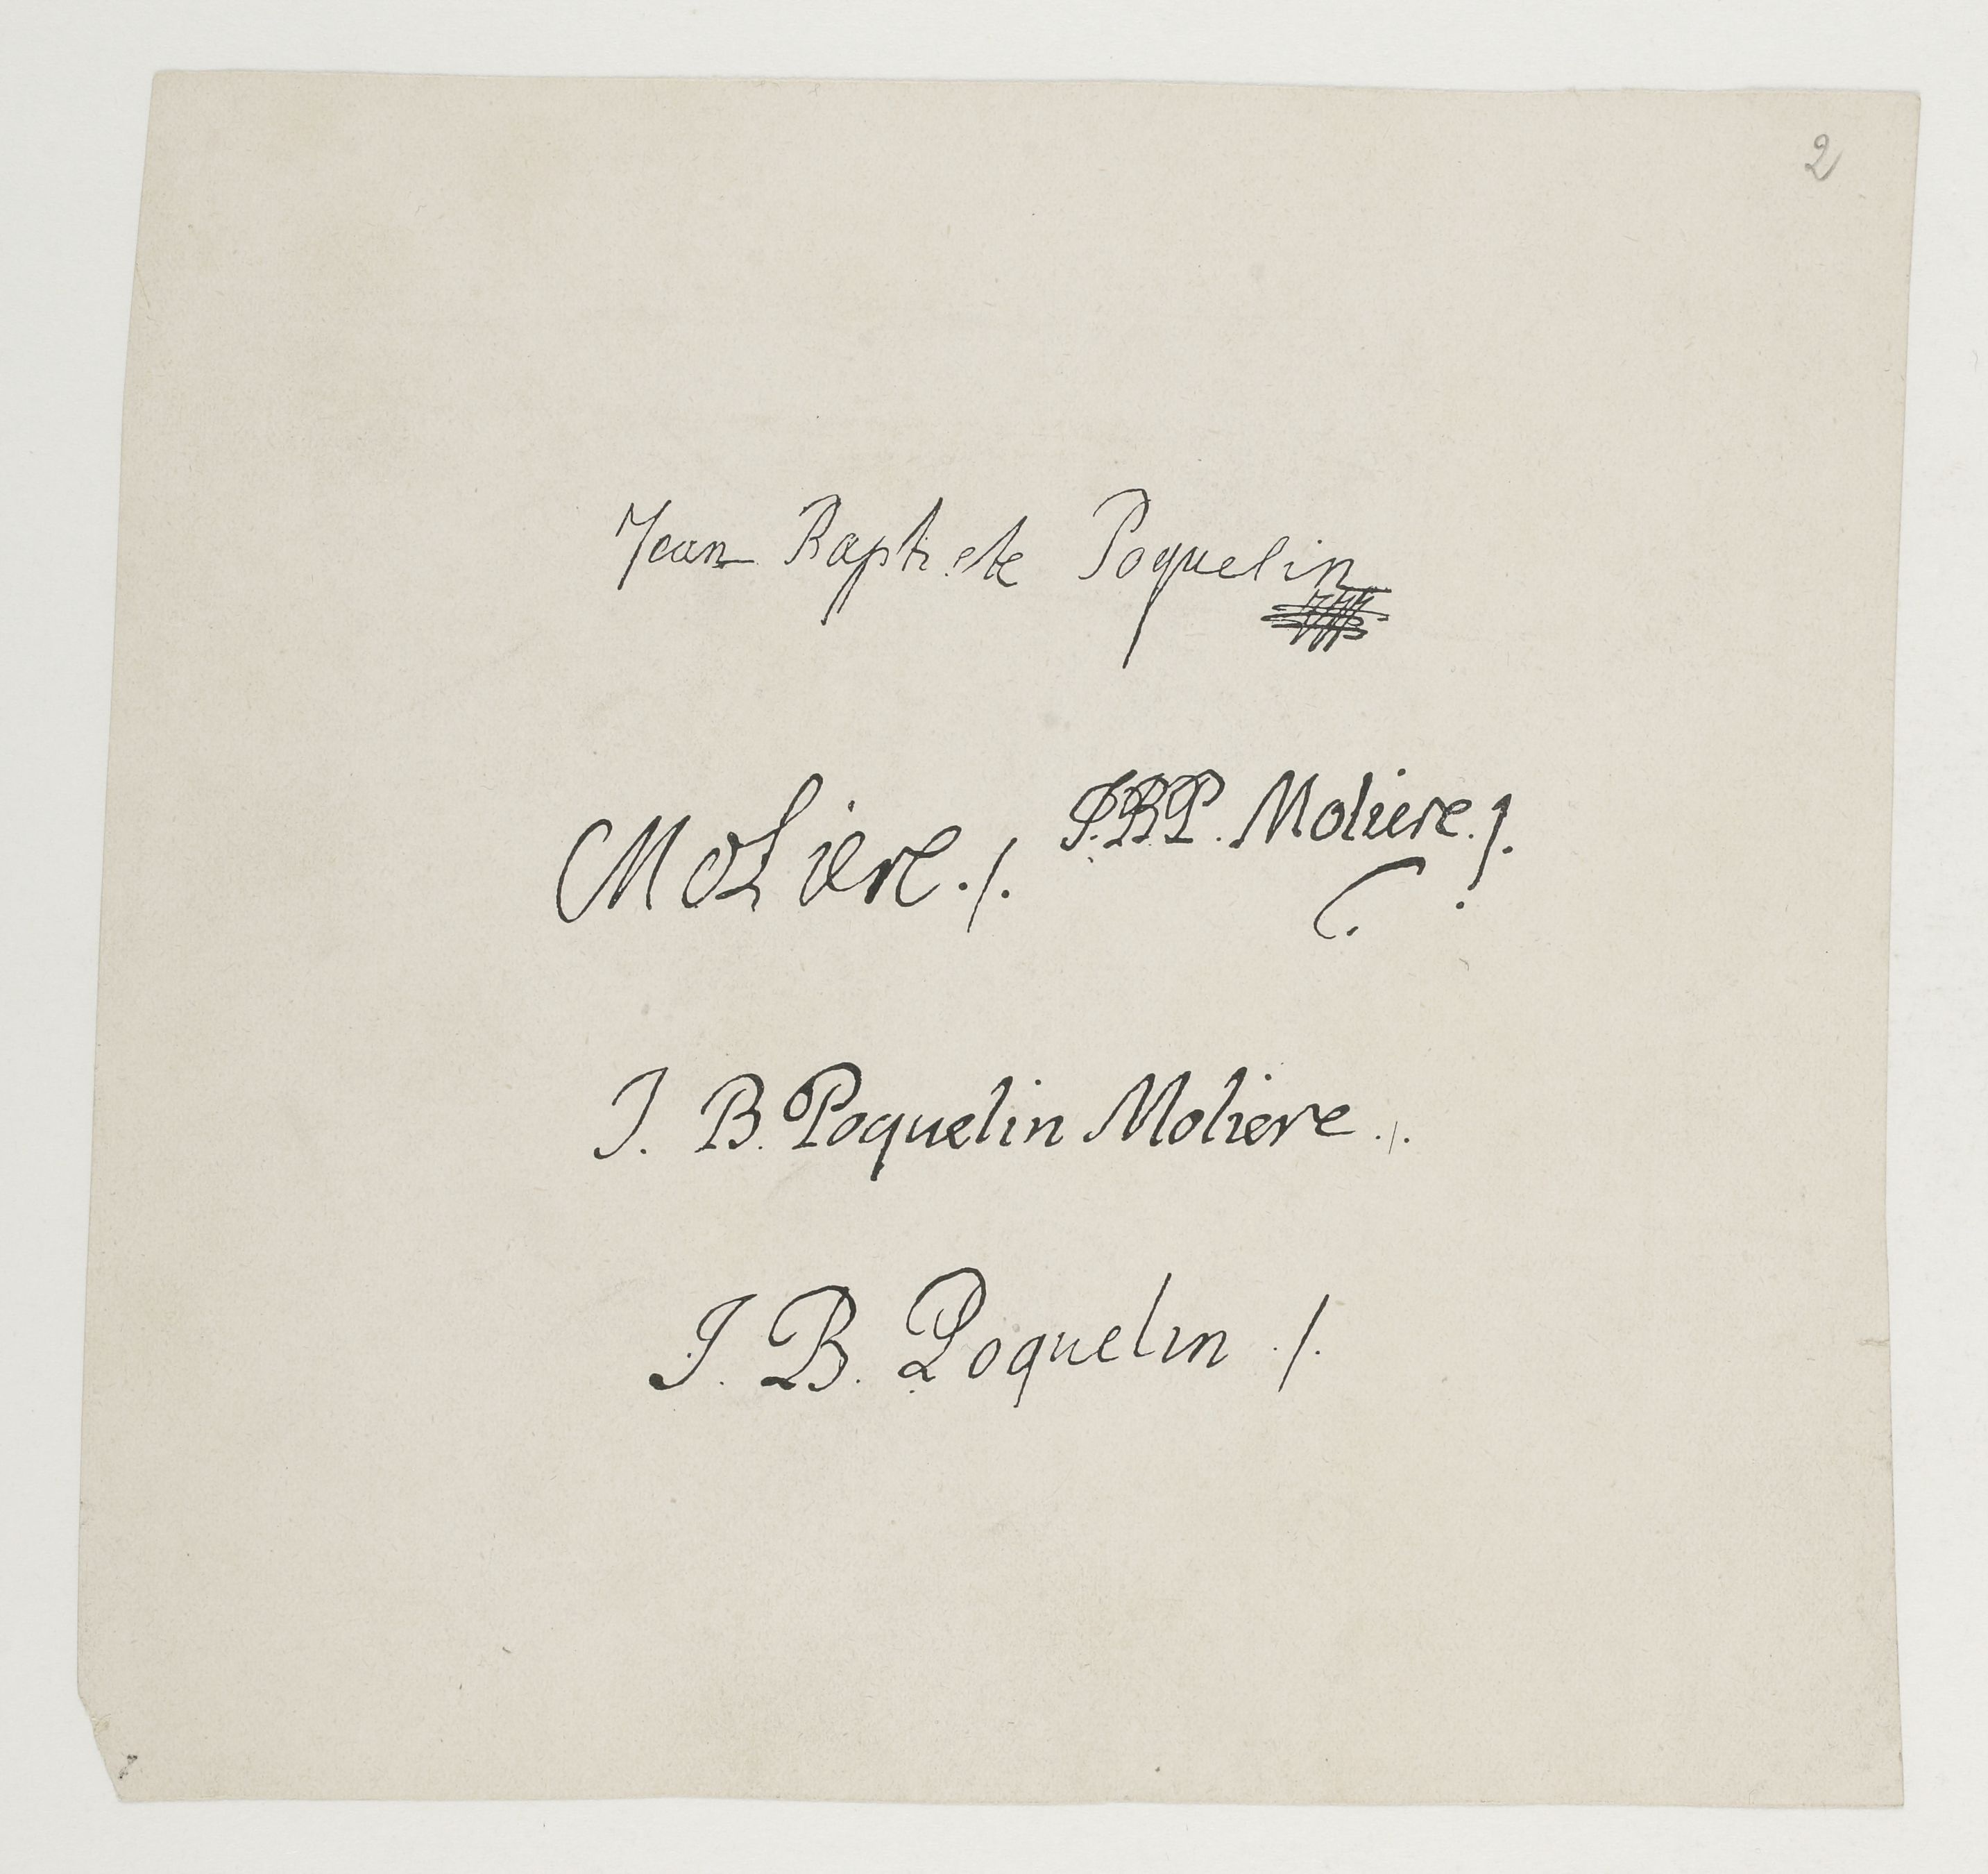 2
Jean Baptiste Poquelin
Moliere ./. J.B.P. Moliere ./.
J. B. Poquelin Moliere ./.
J. B. Poquelin ./.